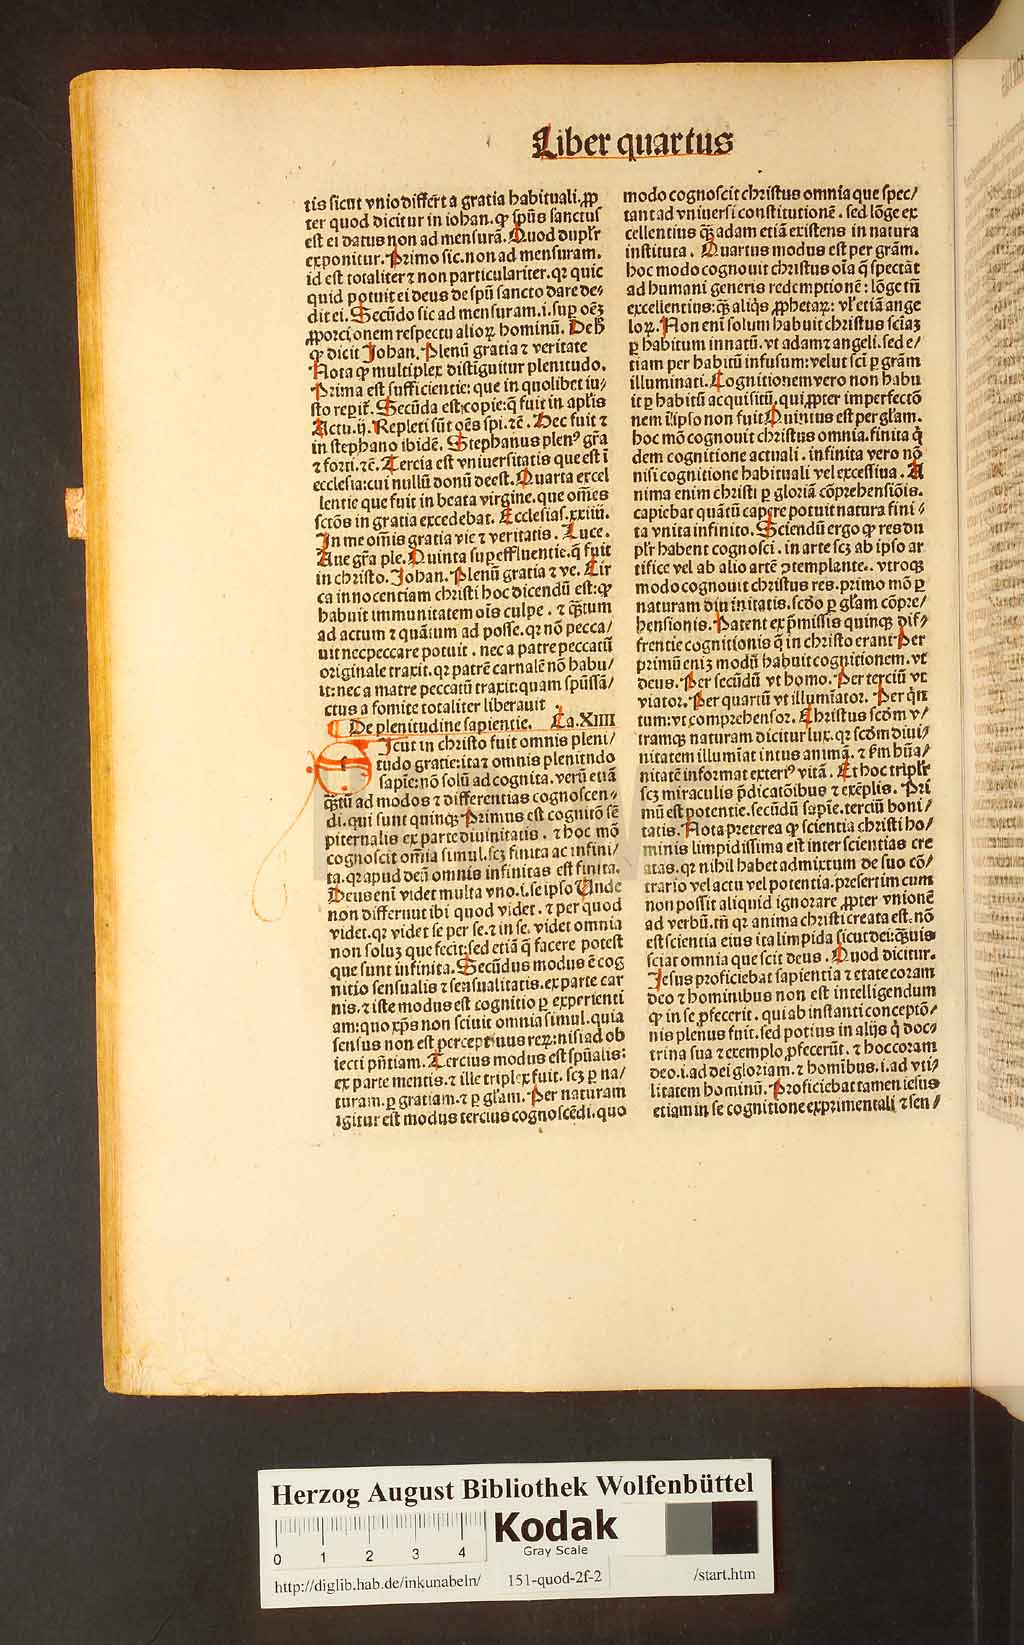 Liber quartus
tis sicut vnio differt a gratia habituali. ꝓp
ter quod dicitur in iohan. ꝙ spūs sanctus
est ei datus non ad mensurā. Quod duplr̄
exponitur. Primo sic. non ad mensuram.
id est totaliter ⁊ non particulariter. qꝛ quic
quid potuit ei deus de spū sancto dare de⸗
dit ei. Secūdo sic ad mensuram .i. suꝑ oēꝫ
ꝓporcionem respectu alioꝝ hominū. De h̄
ꝙ dicit Johan. Plenū gratia ⁊ veritate
Nota ꝙ multiplex distiguitur plenitudo.
Prima est sufficientie: que in quolibet iu⸗
sto reꝑit̄. Secūda est copie: q̄ fuit in apl̄is
Actu. ij. Repleti sūt oēs spi. ⁊c̄. Hec fuit ⁊
in stephano ibidē. Stephanus plenꝰ gr̄a
⁊ forti. ⁊c̄. Tercia est vniuersitatis que est ī
ecclesia: cui nullū donū deest. Quarta excel
lentie que fuit in beata virgine. que om̄es
sctōs in gratia excedebat. Ecclesias. xxiiii.
In me om̄is gratia vie ⁊ veritatis. Luce.
Aue gr̄a ple. Quinta suꝑeffluentie. q̄ fuit
in christo. Johan. Plenū gratia ⁊ ve. Cir
ca innocentiam christi hoc dicendū est: ꝙ
habuit immunitatem oīs culpe. ⁊ qꝫtum
ad actum ⁊ quātum ad posse. qꝛ nō pecca/
uit nec peccare potuit. nec a patre peccatū
originale traxit. qꝛ patrē carnalē nō habu/
it: nec a matre peccatū traxit: quam spūssā/
ctus a fomite totaliter liberauit.
De plenitudine sapientie. Ca. XIIII
SIcut in christo fuit omnis pleni/
tudo gratie: ita ⁊ omnis plenitudo
sapīe: nō solū ad cognita. verū etiā
qꝫtū ad modos ⁊ differentias cognoscen⸗
di. qui sunt quinqꝫ Primus est cognitō sē
piternalis ex parte diuinitatis. ⁊ hoc mō
cognoscit om̄ia simul. scꝫ finita ac infini/
ta. qꝛ apud deū omnis infinitas est finita.
Deus eni videt multa vno .i. se ipso Unde
non differunt ibi quod videt. ⁊ per quod
videt. qꝛ videt se per se. ⁊ in se. videt omnia
non soluꝫ que fecit: sed etiā q̄ facere potest
que sunt infinita. Secūdus modus ē cog
nitio sensualis ⁊ sensualitatis. ex parte car
nis. ⁊ iste modus est cognitio ꝑ experienti
am: quo xp̄s non sciuit omnia simul. quia
sensus non est perceptiuus reꝝ: nisi ad ob
iecti pn̄tiam. Tercius modus est spūalis:
ex parte mentis. ⁊ ille triplex fuit. scꝫ ꝑ na/
turam. ꝑ gratiam. ⁊ ꝑ gl̄am. Per naturam
igitur est modus tercius cognoscēdi. quo
modo cognoscit christus omnia que spec/
tant ad vniuersi constitutionē. sed lōge ex
cellentius qꝫ adam etiā existens in natura
instituta. Quartus modus est per gr̄am.
hoc modo cognouit christus oīa q̄ spectāt
ad humani generis redemptionē: lōge tn̄
excellentius: qꝫ aliqͥs ꝓphetaꝝ: vl̄ etiā ange
loꝝ. Non eni solum habuit christus sciaꝫ
ꝑ habitum innatū. vt adam ⁊ angeli. sed e/
tiam per habitū infusum: velut sci ꝑ gr̄am
illuminati. Cognitionem vero non habu
it ꝑ habitū acquisitū. qui ꝓpter imperfectō
nem i̅ ipso non fuit Quintus est per gl̄am.
hoc mō cognouit christus omnia. finita q̄
dem cognitione actuali. infinita vero nō
nisi cognitione habituali vel excessiua. A
nima enim christi ꝑ gloriā cōprehensiōis.
capiebat quātū capere potuit natura fini⸗
ta vnita infinito. Sciendū ergo ꝙ res du
plr̄ habent cognosci. in arte scꝫ ab ipso ar
tifice vel ab alio artē ꝯtemplante. vtroqꝫ
modo cognouit christus res. primo mō ꝑ
naturam diuinitatis. scdō ꝑ gl̄am cōpre/
hensionis. Patent ex p̄missis quinqꝫ dif⸗
frentie cognitionis q̄ in christo erant Per
primū eniꝫ modū habuit cognitionem. vt
deus. Per secūdū vt homo. Per terciū vt
viator. Per quartū vt illumīator. Per qͥn
tum: vt comprehensor. Christus scdm v/
tramqꝫ naturam dicitur lux. qꝛ scdm diui/
nitatem illumīat intus animā. ⁊ scdm hūa/
nitatē informat exteriꝰ vitā. Et hoc triplr̄
scꝫ miraculis p̄dicatōibus ⁊ exēplis. Pri
mū est potentie. secūdū sapīe. terciū boni/
tatis. Nota preterea ꝙ scientia christi ho/
minis limpidissima est inter scientias cre
atas. qꝛ nihil habet admixtum de suo cō/
trario vel actu vel potentia. presertim cum
non possit aliquid ignorare ꝓpter vnionē
ad verbū. tn̄ qꝛ anima christi creata est. nō
est scientia eius ita limpida sicut dei: qꝫuis
sciat omnia que scit deus. Quod dicitur.
Jesus proficiebat sapientia ⁊ etate coram
deo ⁊ hominibus non est intelligendum
ꝙ in se ꝓfecerit. qui ab instanti conceptō/
nis plenus fuit. sed potius in alijs q̄ doc⸗
trina sua ⁊ exemplo ꝓfecerūt. ⁊ hoc coram
deo .i. ad dei gloriam. ⁊ homībus .i. ad vti⸗
litatem hominū. Proficiebat tamen iesus
etiam in se cognitione exprimentali ⁊ sen/
Herzog August Bibliothek Wolfenbüttel
0 1 2 3 4
Kodak
Gray Scale
http://diglib.hab.de/inkunabeln/ 151-quod-2f-2 /start.htm